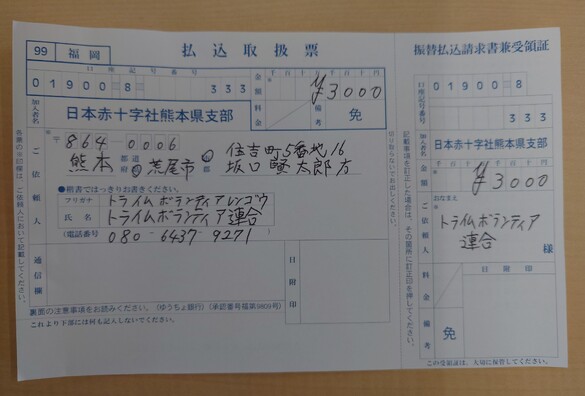 99 福岡 払込取扱票
口座記号番号
01900 8 333
金額 千百十万千百十円
¥3000
料金 備考 免
加入者名 日本赤十字社熊本県支部
〒864-0006
熊本 都道府県 荒尾市 郡 住吉町5番地16
坂口 太郎方
ご依頼人
●楷書ではっきりお書きください。
フリガナ トライムボランティアレンゴウ
氏名 トライムボランティア連合
(電話番号) 080-6437-9271
通信欄
日附印
裏面の注意事項をお読みください。(ゆうちょ銀行)
これより下部には何も記入しないでください。
各票の※印欄は、ご依頼人において記載してください。
切り取らないでお出しください。
振替払込請求書兼受領証
口座記号番号 01900 8
333
加入者名 日本赤十字社熊本県支部
金額 千百十万千百十円
¥3000
ご依頼人 おなまえ
トライムボランティア
連合
様
料金 日附印
備考 免
記載事項を訂正した場合は、その箇所に訂正印を押してください。
この受領証は、大切に保管してください。